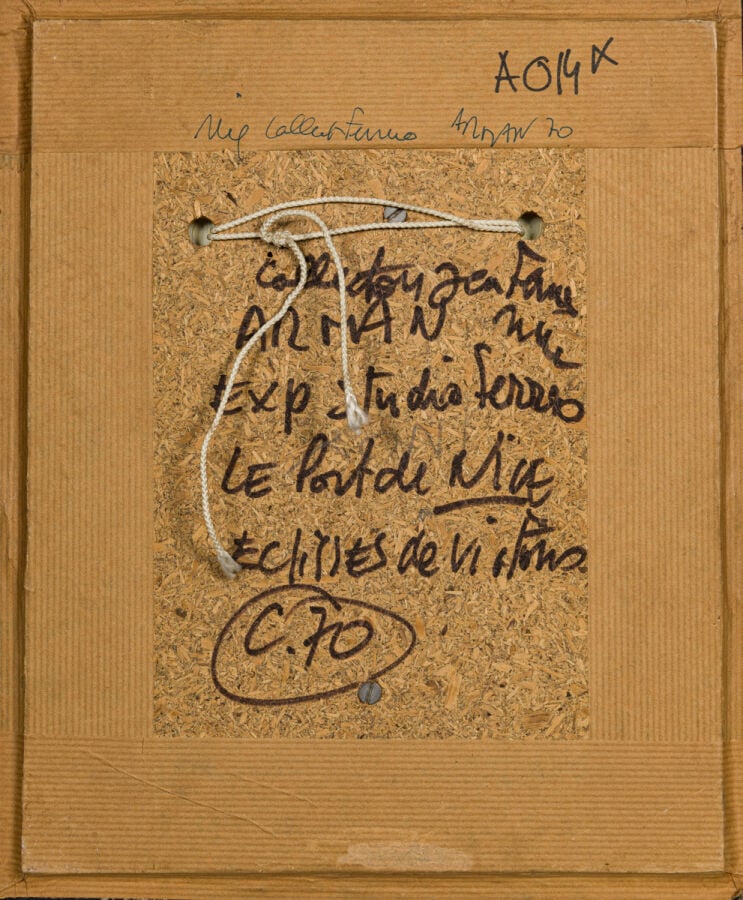 A014 X
ARMAN 70
Collection Jean Ferrero
ARMAN Nice
EXP Studio Ferrero
LE Port de NICE
ECLISSES de Violons
C.70